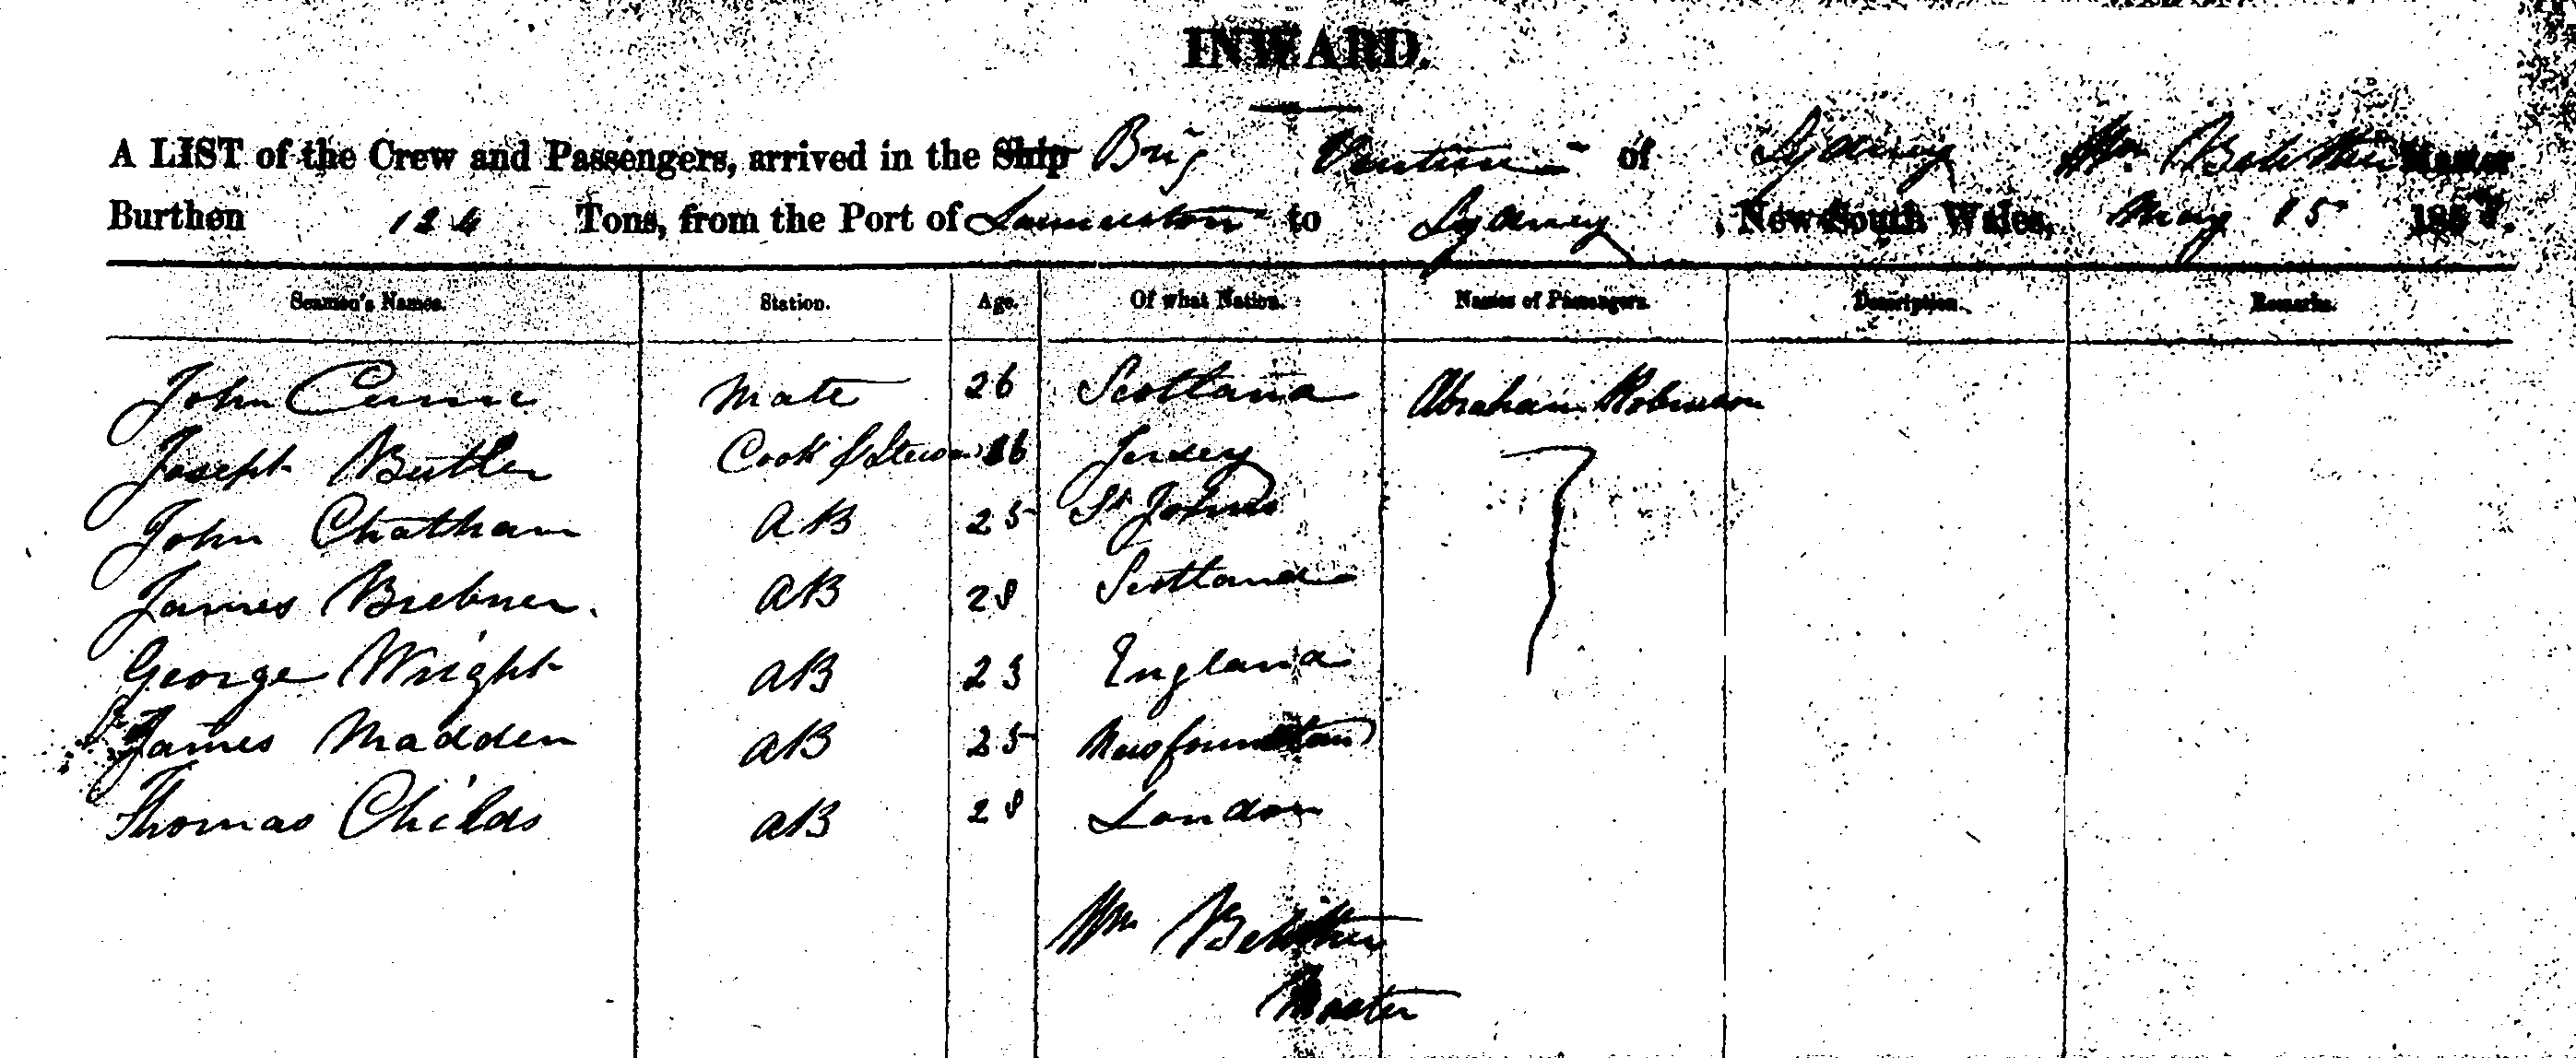 INWARD.
A LIST of the Crew and Passengers, arrived in the Ship Brig of Sydney Wm Master
Burthen 124 Tons, from the Port of Launceston to Sydney, New South Wales, May 15 185
Seamen's Names. Station. Age. Of what Nation. Names of Passengers. Description. Remarks.
John Currie Mate 26 Scotland Abraham Robinson
Joseph Butler Cook & Steward Jersey
John Chatham AB 25 St Johns
James Brebner. AB 28 Scotland
George Wright AB 23 England
James Madden AB 25 Newfoundland
Thomas Childs AB 28 London
Wm
Master